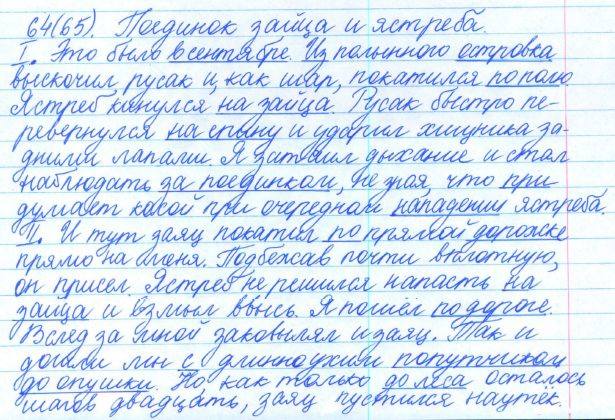 64(65). Поединок зайца и ястреба.
I. Это было в сентябре. Из полынного островка
выскочил русак и, как шар, покатился по полю.
Ястреб кинулся на зайца. Русак быстро пе-
ревернулся на спину и ударил хищника за-
дними лапами. Я затаил дыхание и стал
наблюдать за поединком, не зная, что при
думает косой при очередном нападении ястреба
II. И тут заяц покатил по прямой дорожке
прямо на меня. Подбежав почти вплотную,
он присел. Ястреб не решился напасть на
зайца и взмыл ввысь. Я пошёл по дороге.
Вслед за мной заковылял и заяц. Так и
дошли мы с длинноухим попутчиком
до опушки. Но как только до леса осталось
шагов двадцать, заяц пустился наутёк.